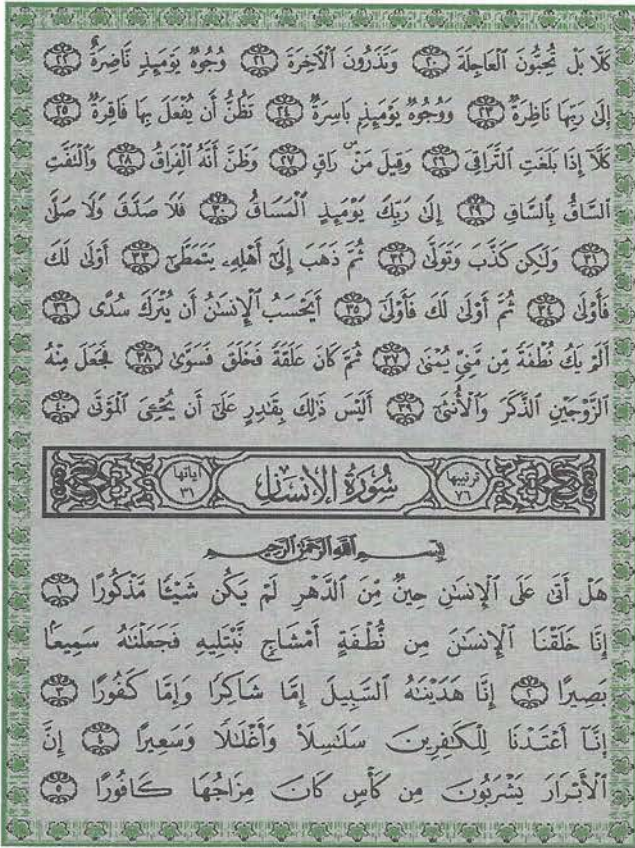 كَلَّا بَلْ تُحِبُّونَ ٱلْعَاجِلَةَ ٢٠ وَتَذَرُونَ ٱلْأَخِرَةَ ٢١ وُجُوهٌ يَوْمَئِذٍ نَّاضِرَةٌ ٢٢
إِلَىٰ رَبِّهَا نَاظِرَةٌ ٢٣ وَوُجُوهٌ يَوْمَئِذٍۭ بَاسِرَةٌ ٢٤ تَظُنُّ أَن يُفْعَلَ بِهَا فَاقِرَةٌ ٢٥
كَلَّآ إِذَا بَلَغَتِ ٱلتَّرَاقِىَ ٢٦ وَقِيلَ مَنْ ۜ رَاقٍ ٢٧ وَظَنَّ أَنَّهُ ٱلْفِرَاقُ ٢٨ وَٱلْتَفَّتِ
ٱلسَّاقُ بِٱلسَّاقِ ٢٩ إِلَىٰ رَبِّكَ يَوْمَئِذٍ ٱلْمَسَاقُ ٣٠ فَلَا صَدَّقَ وَلَا صَلَّىٰ
٣١ وَلَٰكِن كَذَّبَ وَتَوَلَّىٰ ٣٢ ثُمَّ ذَهَبَ إِلَىٰٓ أَهْلِهِۦ يَتَمَطَّىٰٓ ٣٣ أَوْلَىٰ لَكَ
فَأَوْلَىٰ ٣٤ ثُمَّ أَوْلَىٰ لَكَ فَأَوْلَىٰٓ ٣٥ أَيَحْسَبُ ٱلْإِنسَٰنُ أَن يُتْرَكَ سُدًى ٣٦
أَلَمْ يَكُ نُطْفَةً مِّن مَّنِىٍّ يُمْنَىٰ ٣٧ ثُمَّ كَانَ عَلَقَةً فَخَلَقَ فَسَوَّىٰ ٣٨ فَجَعَلَ مِنْهُ
ٱلزَّوْجَيْنِ ٱلذَّكَرَ وَٱلْأُنثَىٰٓ ٣٩ أَلَيْسَ ذَٰلِكَ بِقَٰدِرٍ عَلَىٰٓ أَن يُحْـِۧىَ ٱلْمَوْتَىٰ ٤٠
ترتيبها ٧٦ سُورَةُ الإِنسَانِ آياتها ٣١
بِسْمِ ٱللَّهِ ٱلرَّحْمَٰنِ ٱلرَّحِيمِ
هَلْ أَتَىٰ عَلَى ٱلْإِنسَٰنِ حِينٌ مِّنَ ٱلدَّهْرِ لَمْ يَكُن شَيْـًٔا مَّذْكُورًا ١
إِنَّا خَلَقْنَا ٱلْإِنسَٰنَ مِن نُّطْفَةٍ أَمْشَاجٍ نَّبْتَلِيهِ فَجَعَلْنَٰهُ سَمِيعًۢا
بَصِيرًا ٢ إِنَّا هَدَيْنَٰهُ ٱلسَّبِيلَ إِمَّا شَاكِرًا وَإِمَّا كَفُورًا ٣
إِنَّآ أَعْتَدْنَا لِلْكَٰفِرِينَ سَلَٰسِلَا۟ وَأَغْلَٰلًا وَسَعِيرًا ٤ إِنَّ
ٱلْأَبْرَارَ يَشْرَبُونَ مِن كَأْسٍ كَانَ مِزَاجُهَا كَافُورًا ٥